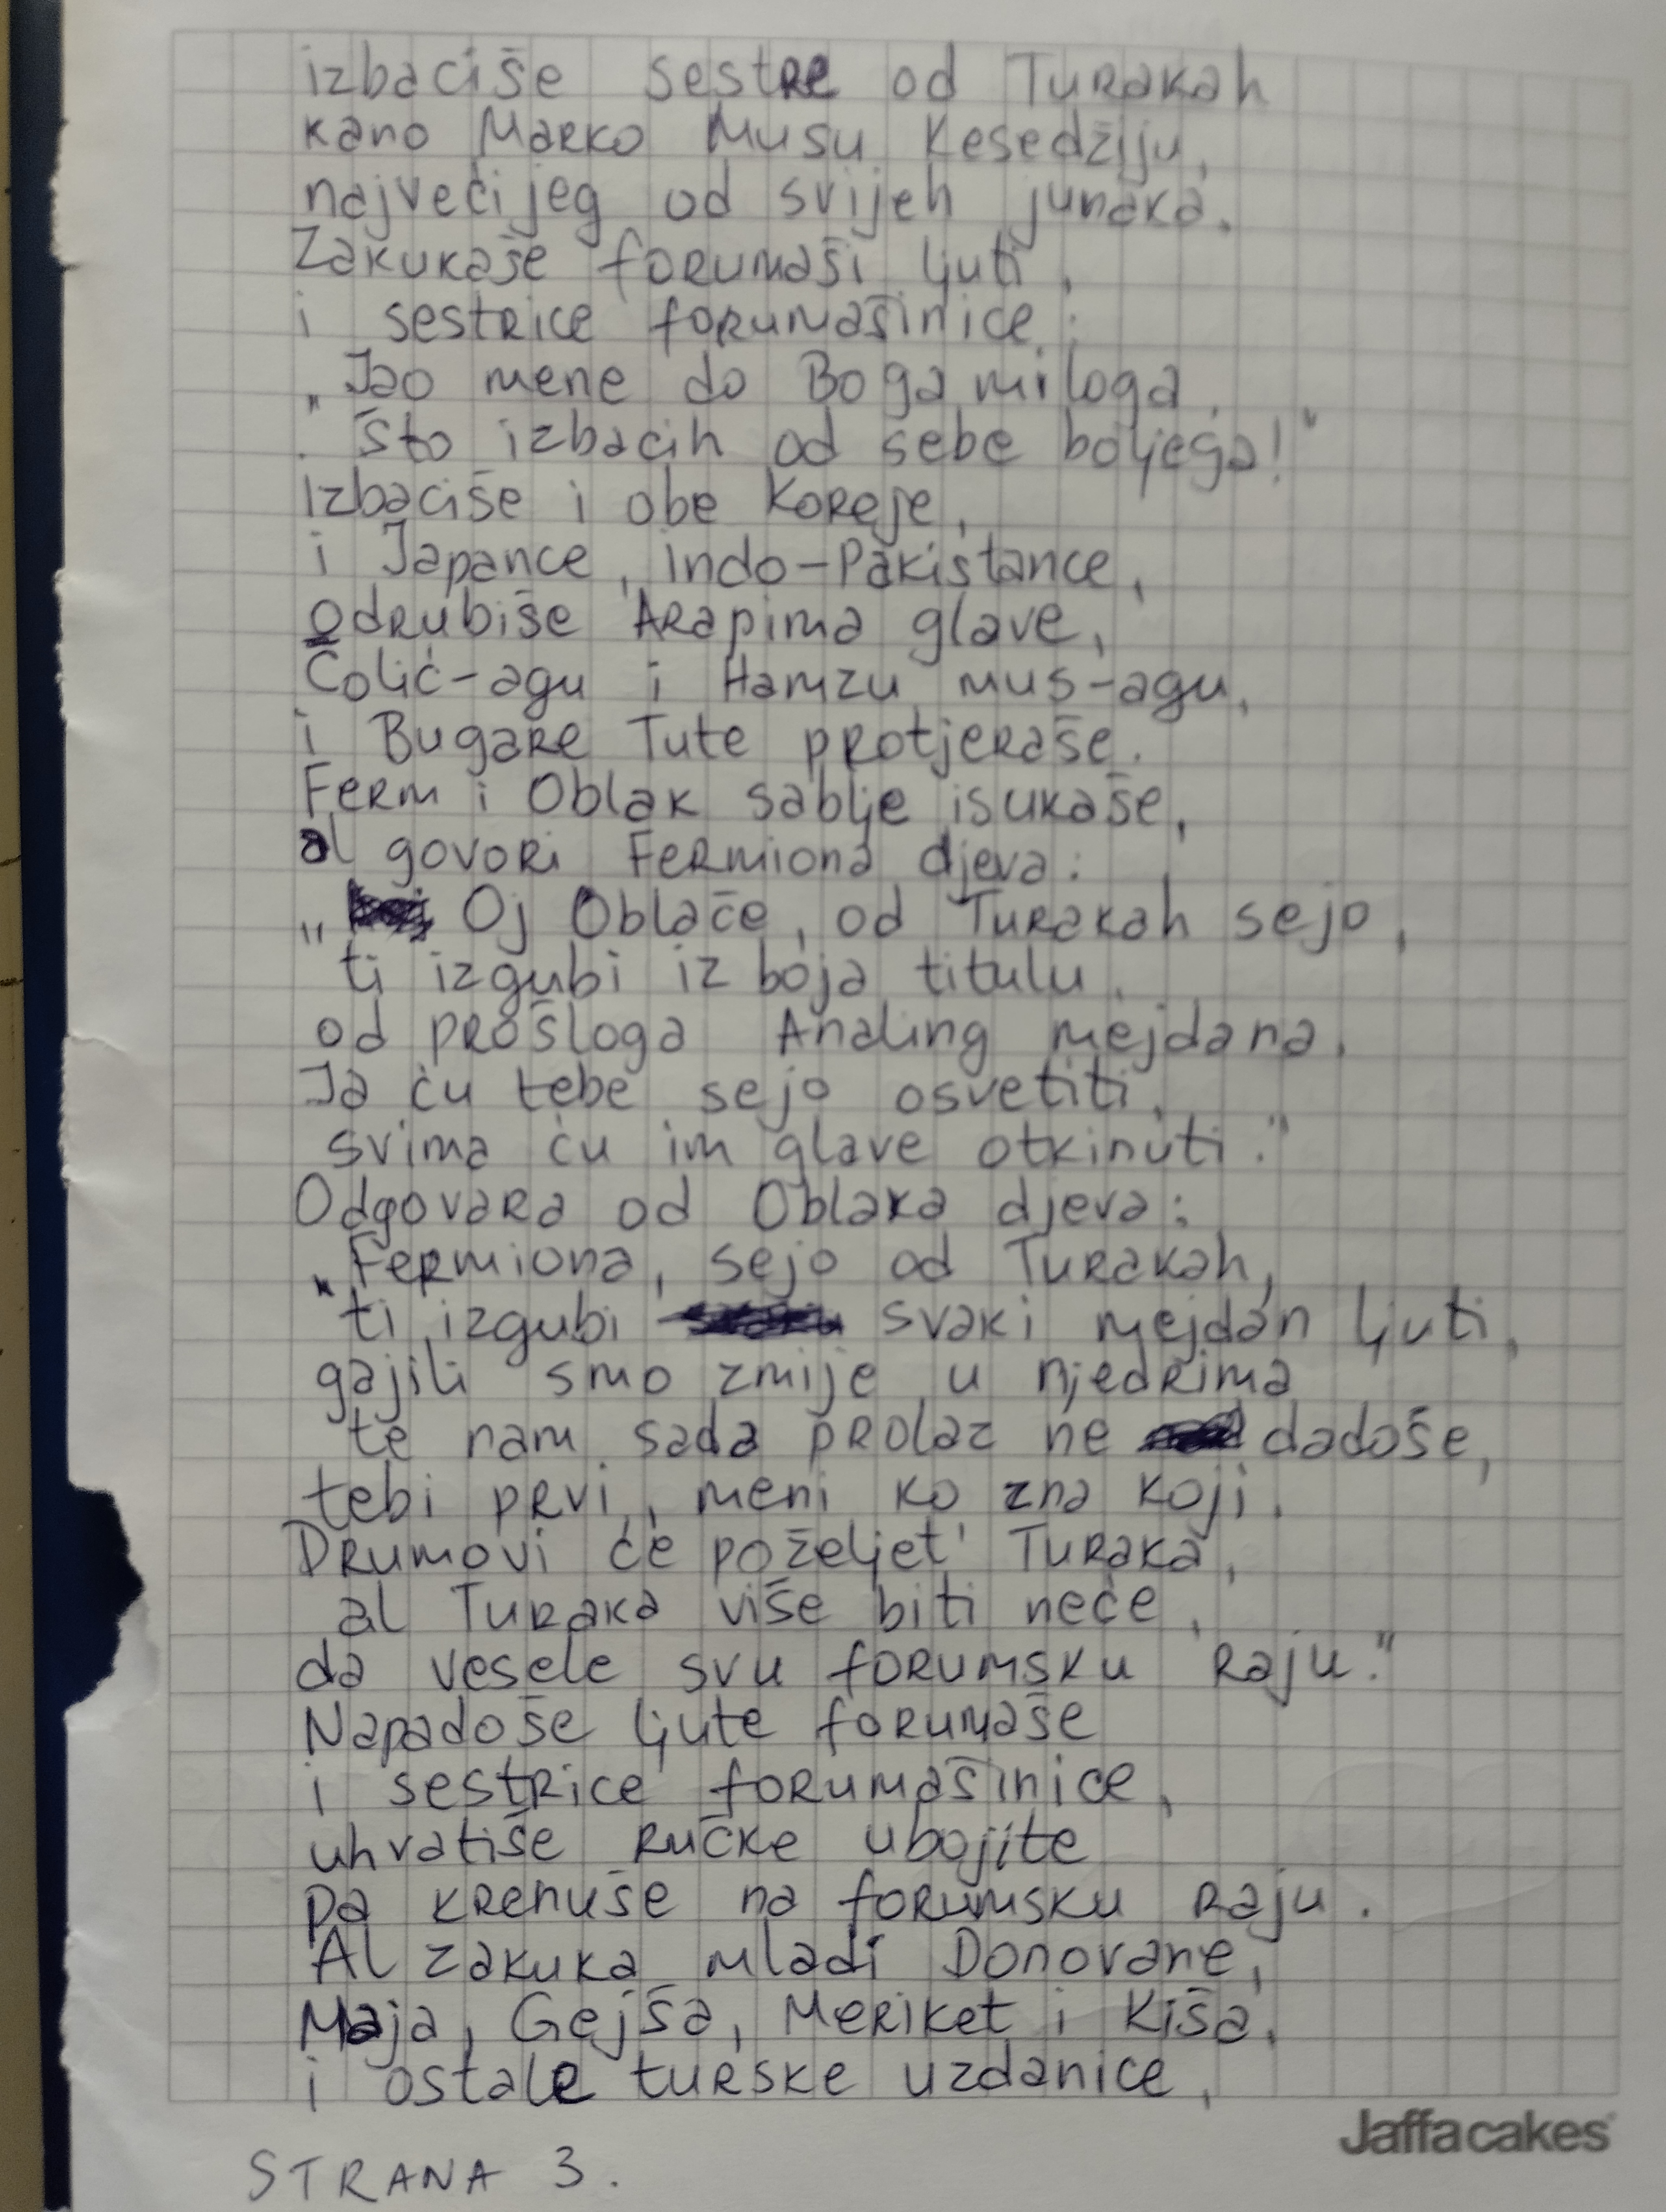 izbaciše sestre od Turakah
kano Marko Musu Kesedžiju,
najvećijeg od svijeh junaka.
Zakukaše forumaši ljuti,
i sestrice forumašinice:
„Jao mene do Boga miloga,
što izbacih od sebe boljega!"
Izbaciše i obe Koreje,
i Japance, Indo-Pakistance,
odrubiše Arapima glave,
Čolić-agu i Hamzu mus-agu,
i Bugare Tute protjeraše.
Ferm i Oblak sablje isukaše,
al govori Fermiona djeva:
„Oj Oblače, od Turakah sejo,
ti izgubi iz boja titulu
od prošloga Analing mejdana.
Ja ću tebe sejo osvetiti,
svima ću im glave otkinuti."
Odgovara od Oblaka djeva:
„Fermiona, sejo od Turakah,
ti izgubi svaki mejdan ljuti,
gajili smo zmije u njedrima
te nam sada prolaz ne dadoše,
tebi prvi, meni ko zna koji.
Drumovi će poželjet' Turaka,
al Turaka više biti neće,
da vesele svu forumsku raju."
Napadoše ljute forumaše
i sestrice forumašinice,
uhvatiše ručke ubojite
pa krenuše na forumsku raju.
Al zakuka mladi Donovane,
Maja, Gejša, Meriket i Kiša,
i ostale turske uzdanice,
Jaffacakes
STRANA 3.